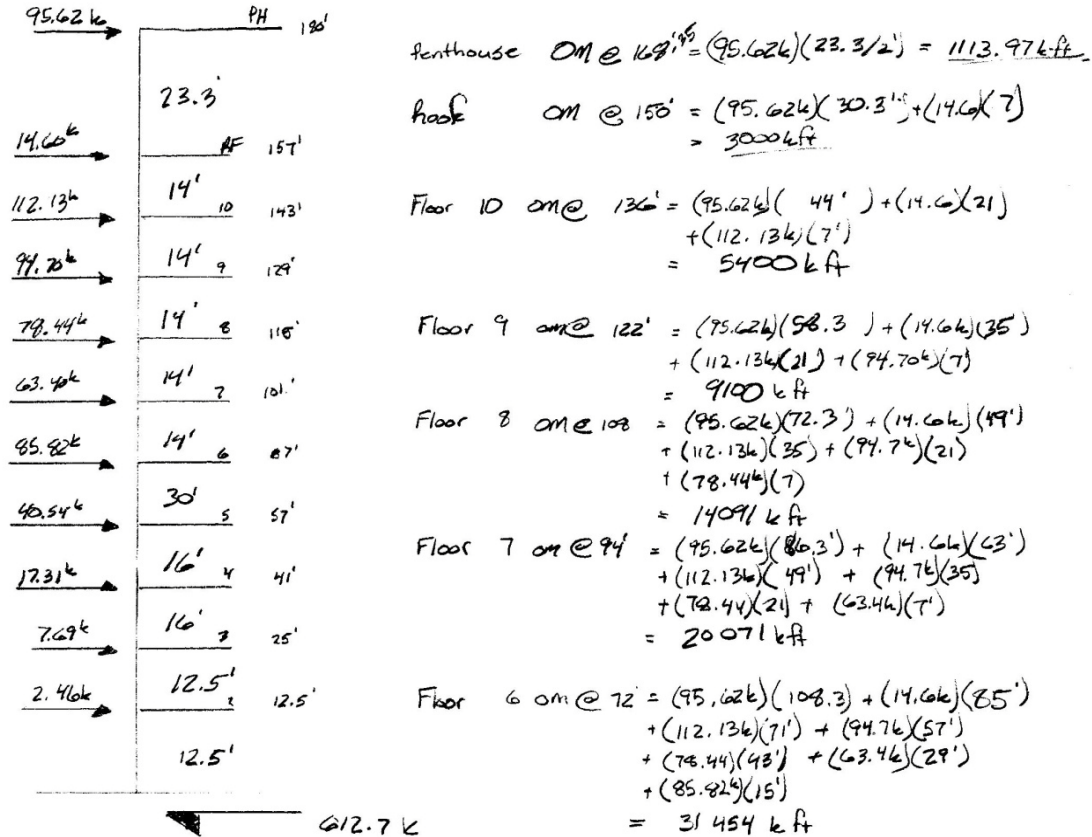 95.62 k PH 180'
23.3'
14.60k RF 157'
14'
112.13k 10 143'
14'
94.70k 9 129'
14'
78.44k 8 115'
14'
63.40k 7 101'
14'
85.82k 6 87'
30'
40.54k 5 57'
16'
17.31k 4 41'
16'
7.69k 3 25'
12.5'
2.46k 2 12.5'
12.5'
612.7 k
Penthouse OM @ 168.35' = (95.62k)(23.3/2') = 1113.97 k-ft
Roof OM @ 150' = (95.62k)(30.3') + (14.6)(7)
= 3000 k ft
Floor 10 om @ 136' = (95.62k)( 44' ) + (14.6)(21)
+ (112.13k)(7')
= 5400 k ft
Floor 9 om @ 122' = (95.62k)(58.3 ) + (14.6k)(35)
+ (112.13k)(21) + (94.70k)(7)
= 9100 k ft
Floor 8 om @ 108 = (95.62k)(72.3') + (14.60k)(49')
+ (112.13k)(35) + (94.7k)(21)
+ (78.44k)(7)
= 14091 k ft
Floor 7 om @ 94' = (95.62k)(86.3') + (14.6k)(63')
+ (112.13k)(49') + (94.7k)(35)
+ (78.44)(21) + (63.4k)(7')
= 20071 k ft
Floor 6 om @ 72' = (95.62k)(108.3) + (14.6k)(85')
+ (112.13k)(71') + (94.7k)(57')
+ (78.44)(43') + (63.4k)(29')
+ (85.82k)(15')
= 31454 k ft